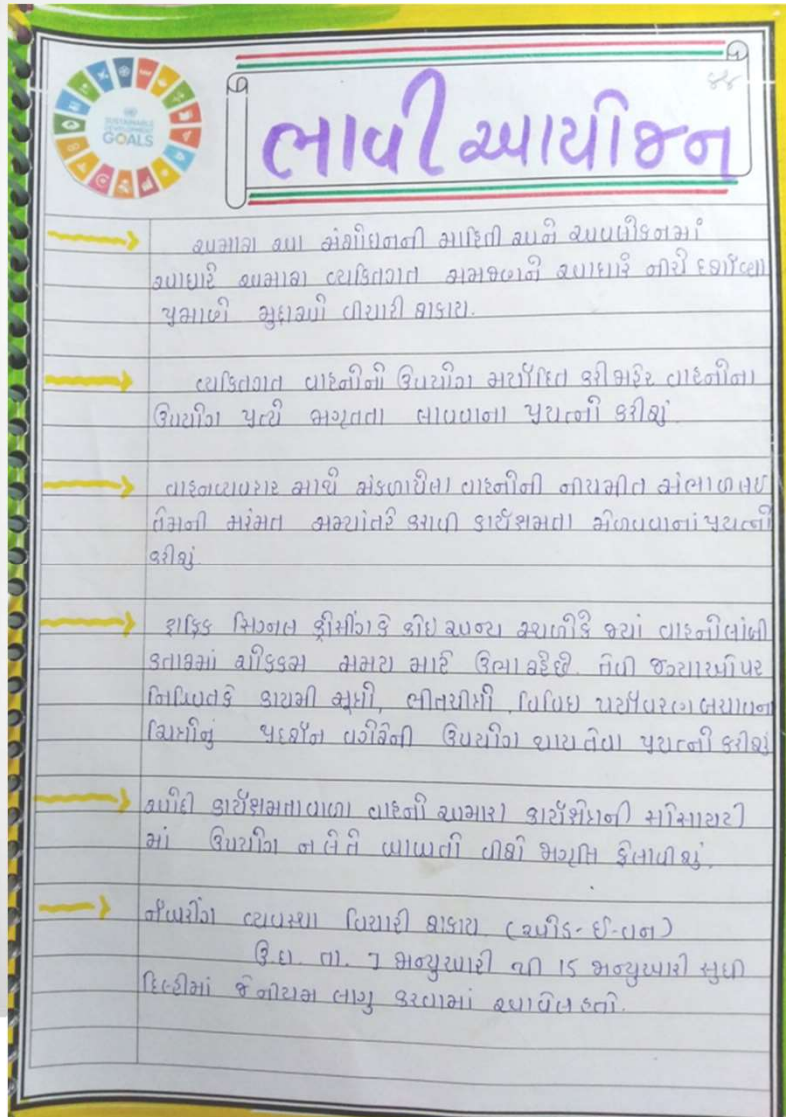 SUSTAINABLE
DEVELOPMENT
GOALS
ભાવી આયોજન
અમારા આ સંશોધનની માહિતી અને અવલોકનમાં
આધારે અમારા વ્યક્તિગત સમજણને આધારે નીચે દર્શાવ્યા
પ્રમાણે મુદ્દાઓ વીચારી શકાય.
વ્યકિતગત વાહનોનો ઉપયોગ મર્યાદિત કરી જાહેર વાહનોના
ઉપયોગ પ્રત્યે જાગૃતતા લાવવાના પ્રયત્નો કરીશું.
વાહનવ્યવહાર સાથે સંકળાયેલા વાહનોની નીયમીત સંભાળ લઇ
તેમની મરંમત સમયાંતરે કરાવી કાર્યક્ષમતા મેળવવાનાં પ્રયત્નો
કરીશું.
ટ્રાફિક સિગ્નલ ક્રોસીંગ કે કોઇ અન્ય સ્થળોકે જ્યાં વાહનોલાંબી
કતારમાં ચોકકસ સમય માટે ઉભા રહેછે. તેવી જગ્યાઓ પર
ભીતચીત્રો, વિવિધ પર્યાવરણ બચાવના
ચિત્રોનું પ્રદર્શન વગેરેનો ઉપયોગ થાય તેવા પ્રયત્નો કરીશું
ઓછી કાર્યક્ષમતાવાળા વાહનો અમારા કાર્યક્ષેત્રની સોસાયટી
માં ઉપયોગ ન લેતે બાબતો વીશે જાગૃતિ ફેલાવીશું.
નંબરીંગ વ્યવસ્થા વિચારી શકાય. (ઓડ-ઈ-વન)
ઉ.દા. તા. 7 જાન્યુઆરી થી 15 જાન્યુઆરી સુધી
દિલ્હીમાં જે નીયમ લાગુ કરવામાં આવેલ હતો.